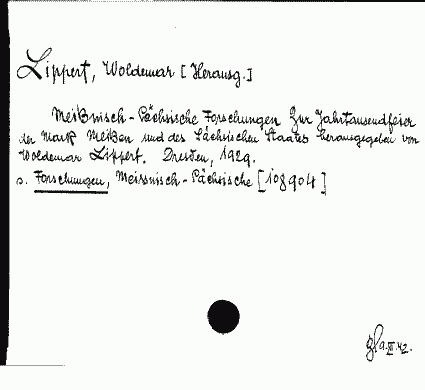 Lippert, Woldemar [Herausg.]
Meißnisch-Sächsische Forschungen zur Jahrtausendfeier
der Mark Meißen und des Sächsischen Staates herausgegeben von
Woldemar Lippert. Dresden, 1929.
s. Forschungen, Meissnisch-Sächsische [108904]